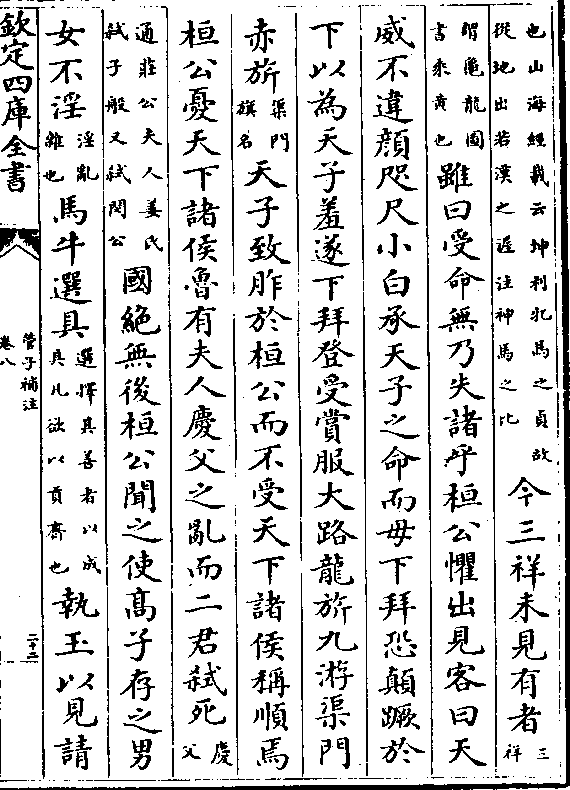 也山海經載云坤利牝馬之貞故
從地出若漢之渥注神馬之比
今三祥未見有者
三
祥
謂龜龍圖
書乘黄也
雖曰受命無乃失諸乎桓公懼出見客曰天
威不違顔咫尺小白承天子之命而毋下拜恐顛蹶於
下以為天子羞遂下拜登受賞服大路龍旂九游渠門
赤旂
渠門
旗名
天子致胙於桓公而不受天下諸侯稱順焉
桓公憂天下諸侯魯有夫人慶父之亂而二君弑死
慶
父
通莊公夫人姜氏
弑子般又弑閔公
國絶無後桓公聞之使髙子存之男
女不淫
淫亂
雜也
馬牛選具
選擇其善者以成
具凡欲以貢齊也
執玉以見請
欽定四庫全書
管子補注
卷八
二十二